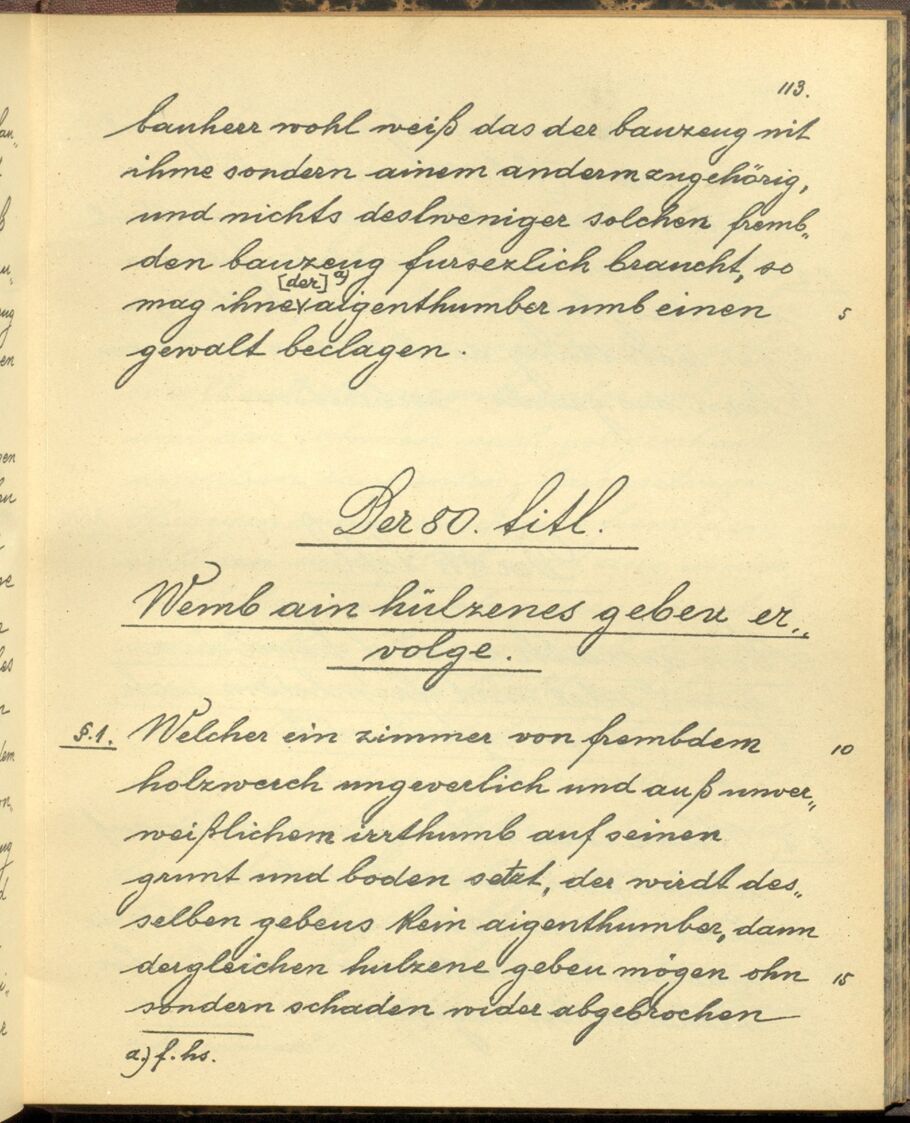 113.
bauherr wohl weiß das der bauzeug nit
ihme sondern ainem anderm zugehörig,
und nichts destweniger solchen fremb„
den bauzeug fursezlich braucht, so
[der] a)
mag ihne aigenthumber umb einen 5
gewalt beclagen.
Der 80. titl.
Wemb ain hülzenes gebeu er„
volge.
§.1. Welcher ein zimmer von frembdem 10
holzwerch ungeverlich und auß unver„
weißlichem irrthumb auf seinen
grunt und boden setzt, der wirdt des„
selben gebeus kein aigenthumber, dann
dergleichen hulzene gebeu mögen ohn 15
sondern schaden wider abgebrochen
a.) f. hs.